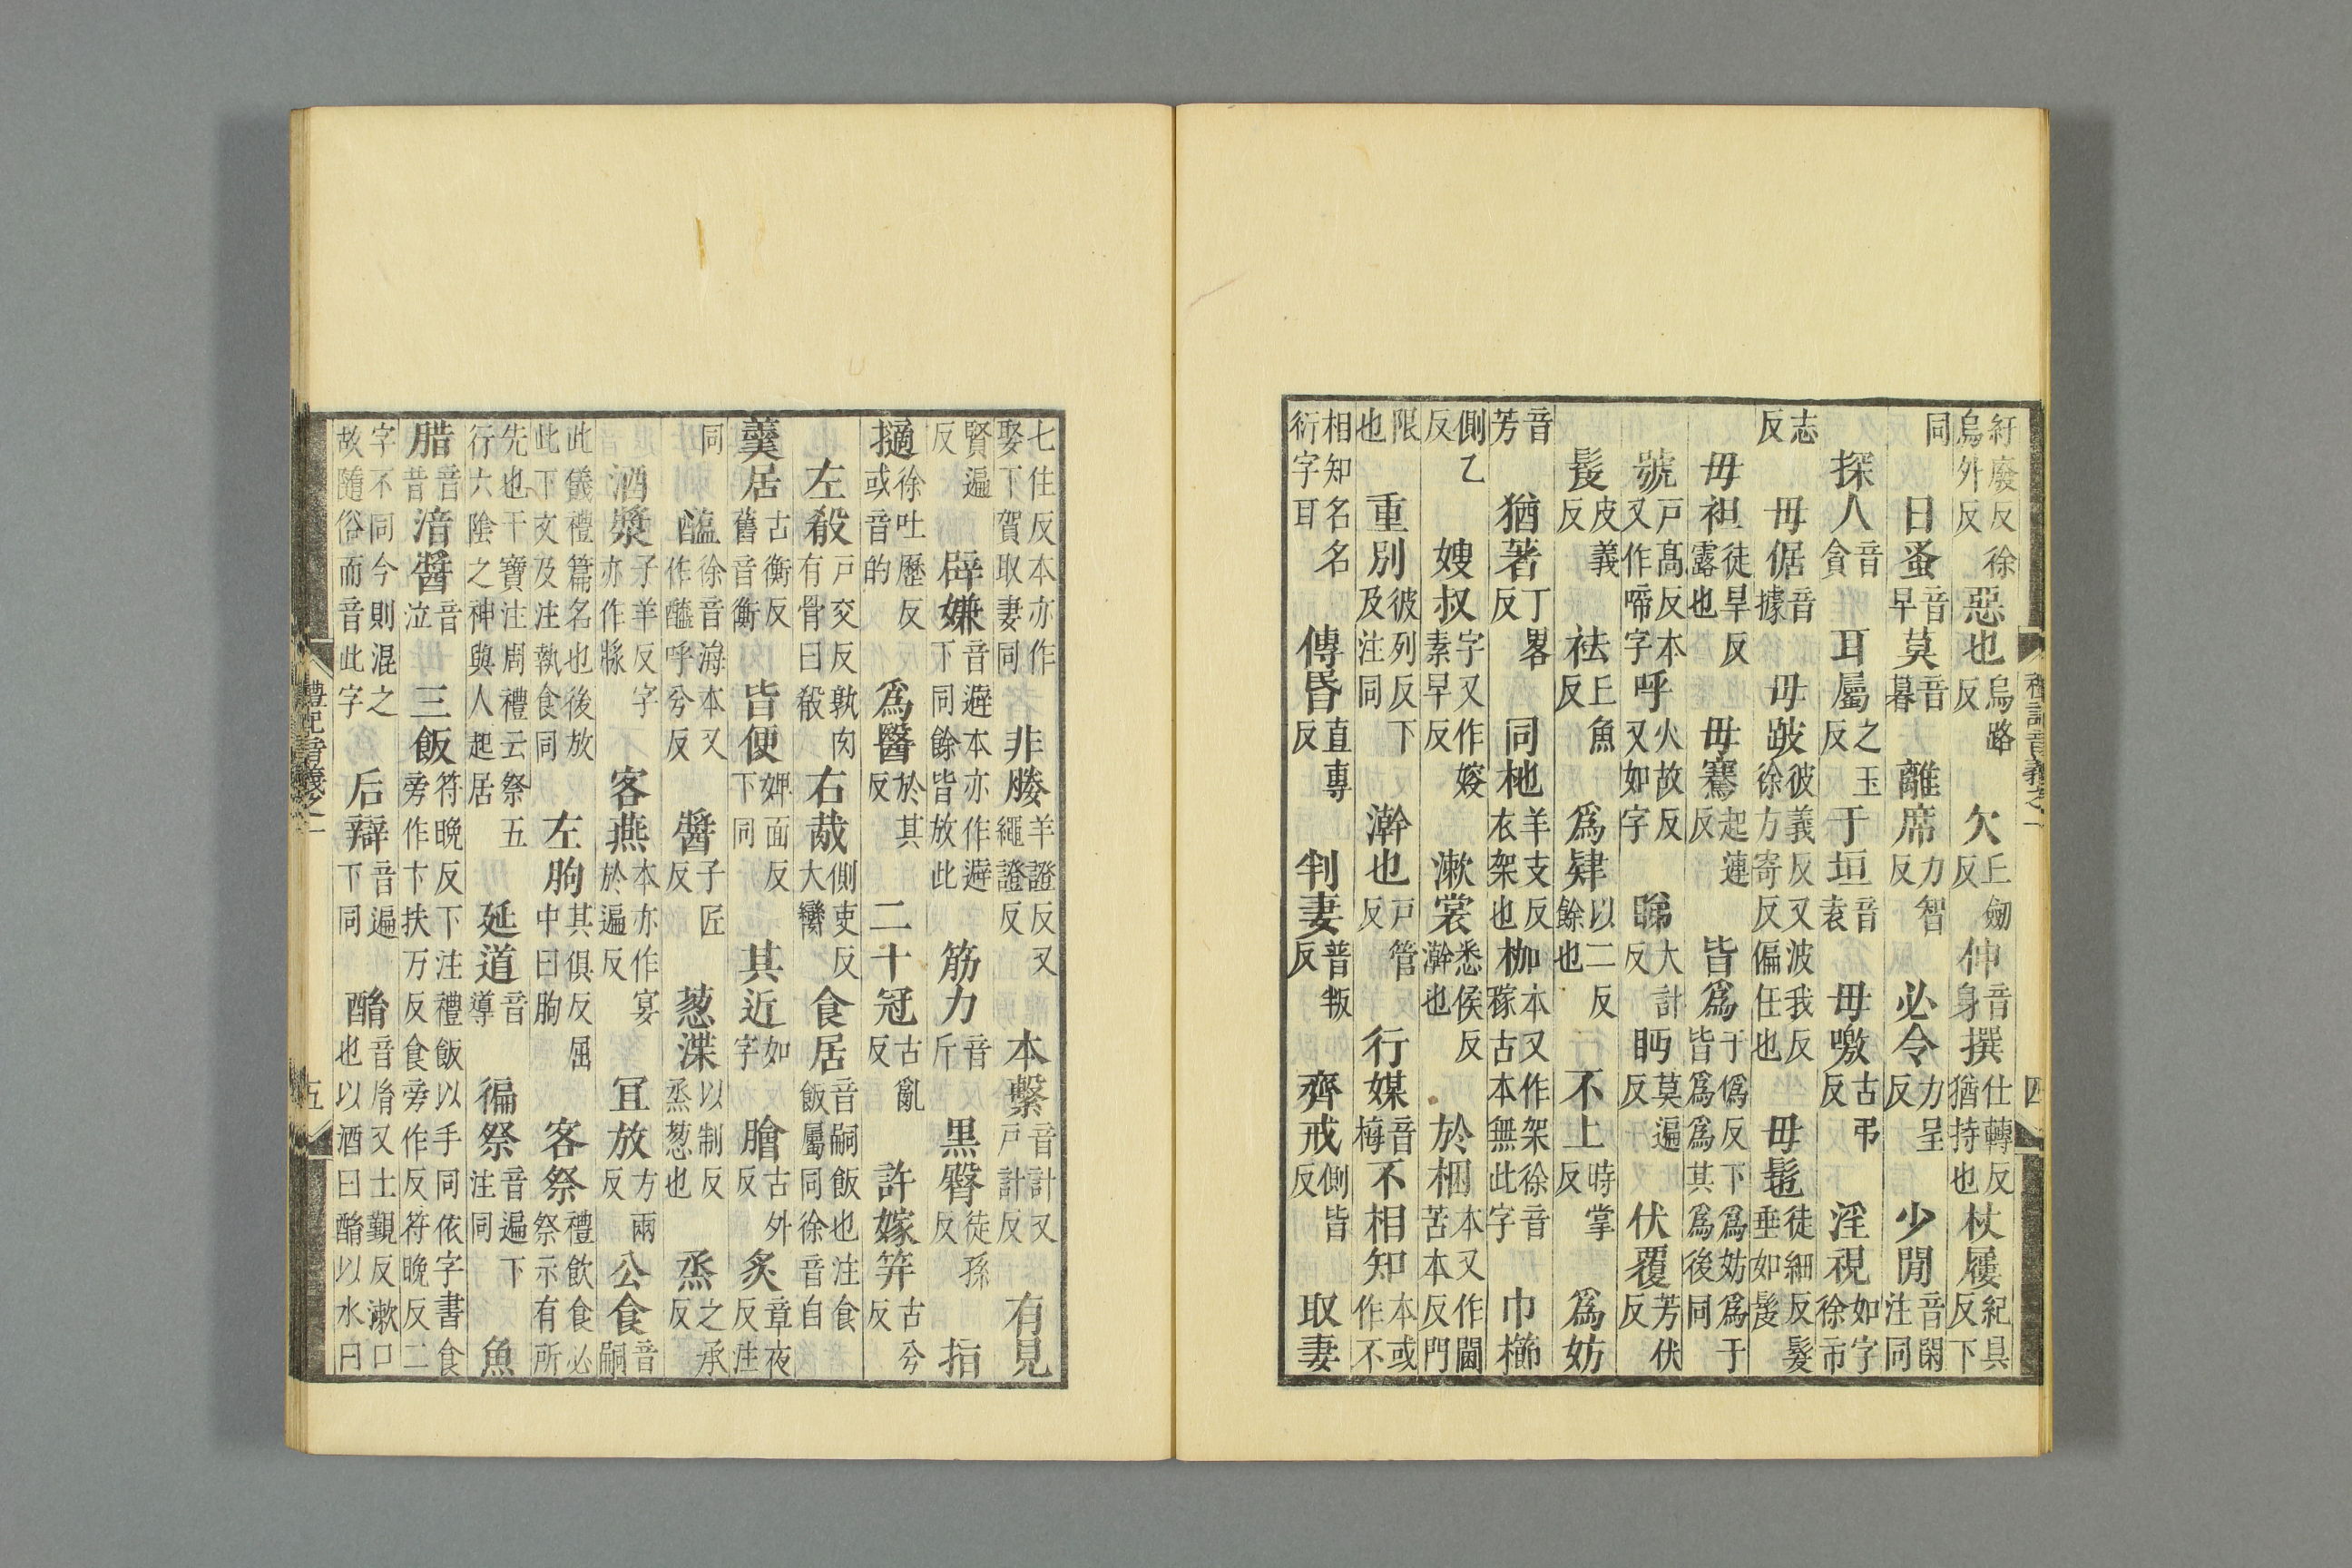 紆廢反徐烏外反 惡也烏路反 欠丘劒反 伸音身 撰仕轉反猶持也 杖屨紀具反下
同 日蚤音早 莫音暮 離席力智反 必令力呈反 少閒音閑注同
探人音貪 耳屬之玉反 于垣音袁 毋噭古弔反 淫視如字徐市
志反 毋倨音據 毋跛彼義反又波我反徐方寄反偏任也 毋髢徒細反髮垂如髲
毋袒徒旱反露也 毋騫起連反 皆爲于僞反下爲妨爲于皆爲爲其爲後同
號戶髙反本又作啼字 呼火故反又如字 睇大計反 眄莫遍反 伏覆芳伏反
髲皮義反 袪丘魚反 爲肄以二反餘也 不上時掌反 爲妨
音芳 猶著丁畧反 同椸羊支反衣架也 枷本又作架徐音稼古本無此字 巾櫛
側乙反 嫂叔字又作㛮素早反 漱裳悉侯反澣也 於梱本又作閫苦本反門
限也 重別彼列反下及注同 澣也戶管反 行媒音梅 不相知本或作不
相知名名衍字耳 傳昏直專反 判妻普叛反 齊戒側皆反 取妻
禮記音義之一 四
七住反本亦作娶下賀取妻同 非媵羊證反又繩證反 本繫音計又戶計反 有見
賢遍反 辟嫌音避本亦作避下同餘皆放此 筋力音斤 黑臀徒孫反 指
擿徐吐歷反或音的 爲醫於其反 二十冠古亂反 許嫁笄古兮反
左殽戶交反孰肉有骨曰殽 右胾側吏反大臠 食居音嗣飯也注食飯屬同徐音自
羹居古衡反舊音衡 皆便婢面反下同 其近如字 膾古外反 炙章夜反注
同 醢徐音海本又作醯呼兮反 醬子匠反 葱渫以制反烝葱也 烝之承反
酒漿子羊反字亦作𤖅 客燕本亦作宴於遍反 冝放方兩反 公食音嗣
此儀禮篇名也後放此下文及注執食同 左朐其俱反屈中曰朐 客祭禮飲食必祭示有所
先也干寶注周禮云祭五行六陰之神與人起居 延道音導 徧祭音遍下注同 魚
腊音昔 湆醬音泣 三飯符晚反下注禮飯以手同依字書食旁作卞扶万反食旁作反符晚反二
字不同今則混之故隨俗而音此字 后辯音遍下同 酳音胤又士覲反漱口也以酒曰酳以水曰
禮記音義之一 五